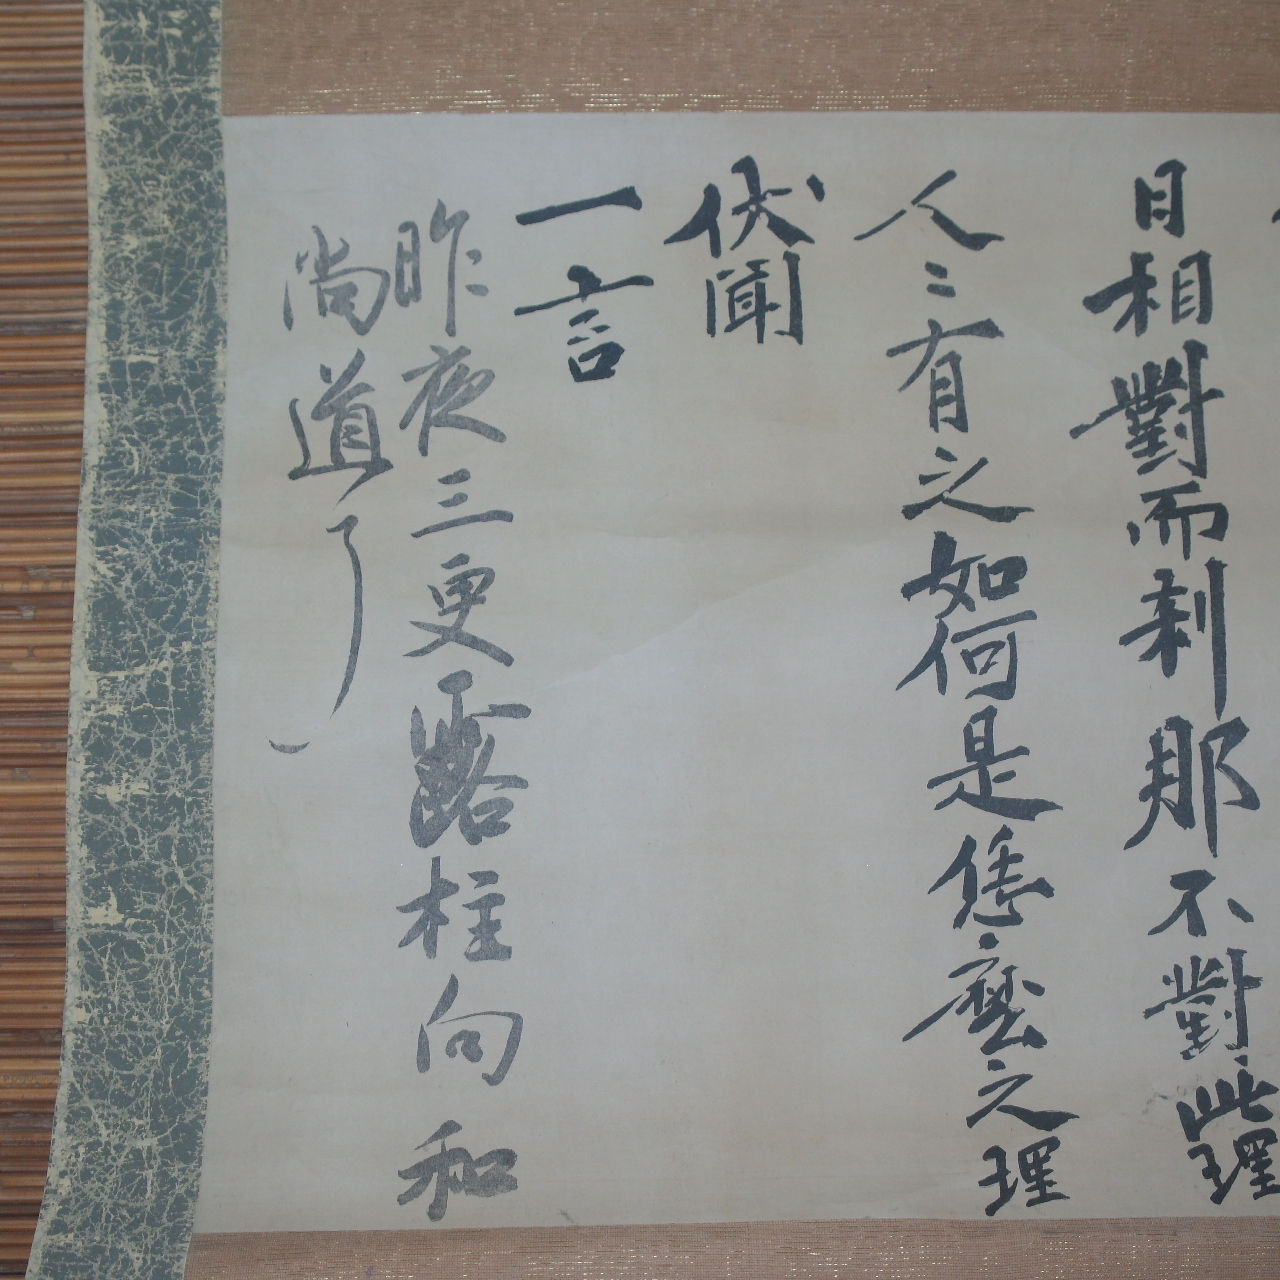 日相對而刹那不對此理
人〻有之如何是恁麽之理
伏聞
一言
昨夜三更露柱向和
尚道了